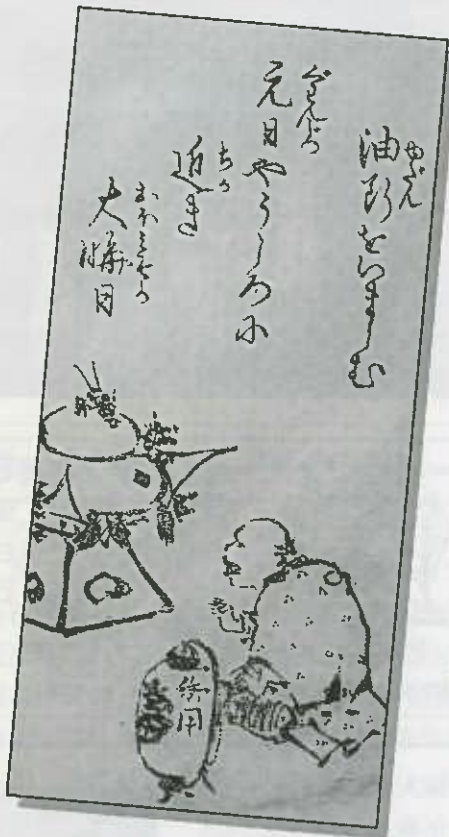 ゆだん
油断をいましむ
ぐわんじつ
元日やうしろに
ちか
近き
おほみそか
大晦日
御用